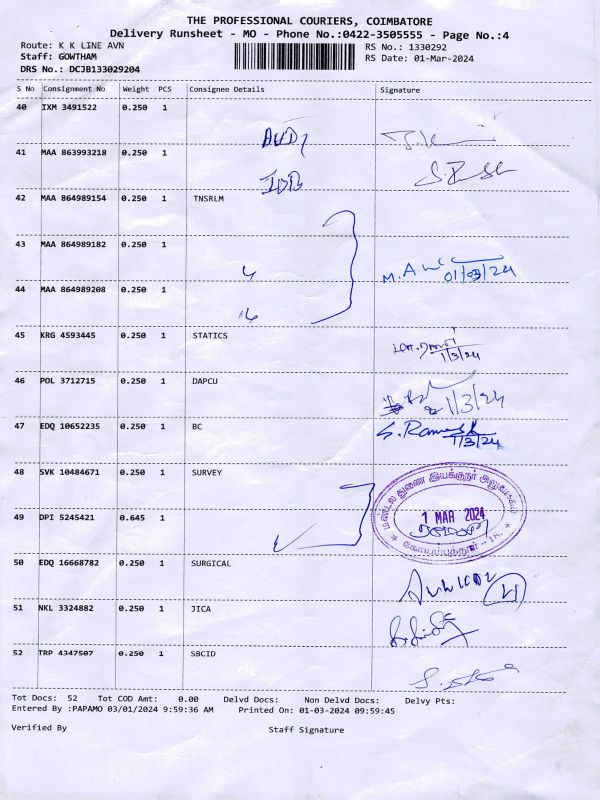 THE PROFESSIONAL COURIERS, COIMBATORE
Delivery Runsheet - MO - Phone No.:0422-3505555 - Page No.:4
Route: K K LINE AVN
RS No.: 1330292
Staff: GOWTHAM
RS Date: 01-Mar-2024
DRS No.: DCJB133029204
S No Consignment No Weight PCS Consignee Details Signature
40 IXM 3491522 0.250 1
41 MAA 863993218 0.250 1
42 MAA 864989154 0.250 1 TNSRLM
43 MAA 864989182 0.250 1
01/03/24
44 MAA 864989208 0.250 1
45 KRG 4593445 0.250 1 STATICS
1/3/24
46 POL 3712715 0.250 1 DAPCU
1/3/24
47 EDQ 10652235 0.250 1 BC S. Ramesh
1/3/24
48 SVK 10484671 0.250 1 SURVEY
மண்டல துணை இயக்குநர் அலுவலகம்
49 DPI 5245421 0.645 1
1 MAR 2024
50 EDQ 16668782 0.250 1 SURGICAL
51 NKL 3324882 0.250 1 JICA
52 TRP 4347507 0.250 1 SBCID
Tot Docs: 52 Tot COD Amt: 0.00 Delvd Docs: Non Delvd Docs: Delvy Pts:
Entered By :PAPAMO 03/01/2024 9:59:36 AM Printed On: 01-03-2024 09:59:45
Verified By Staff Signature